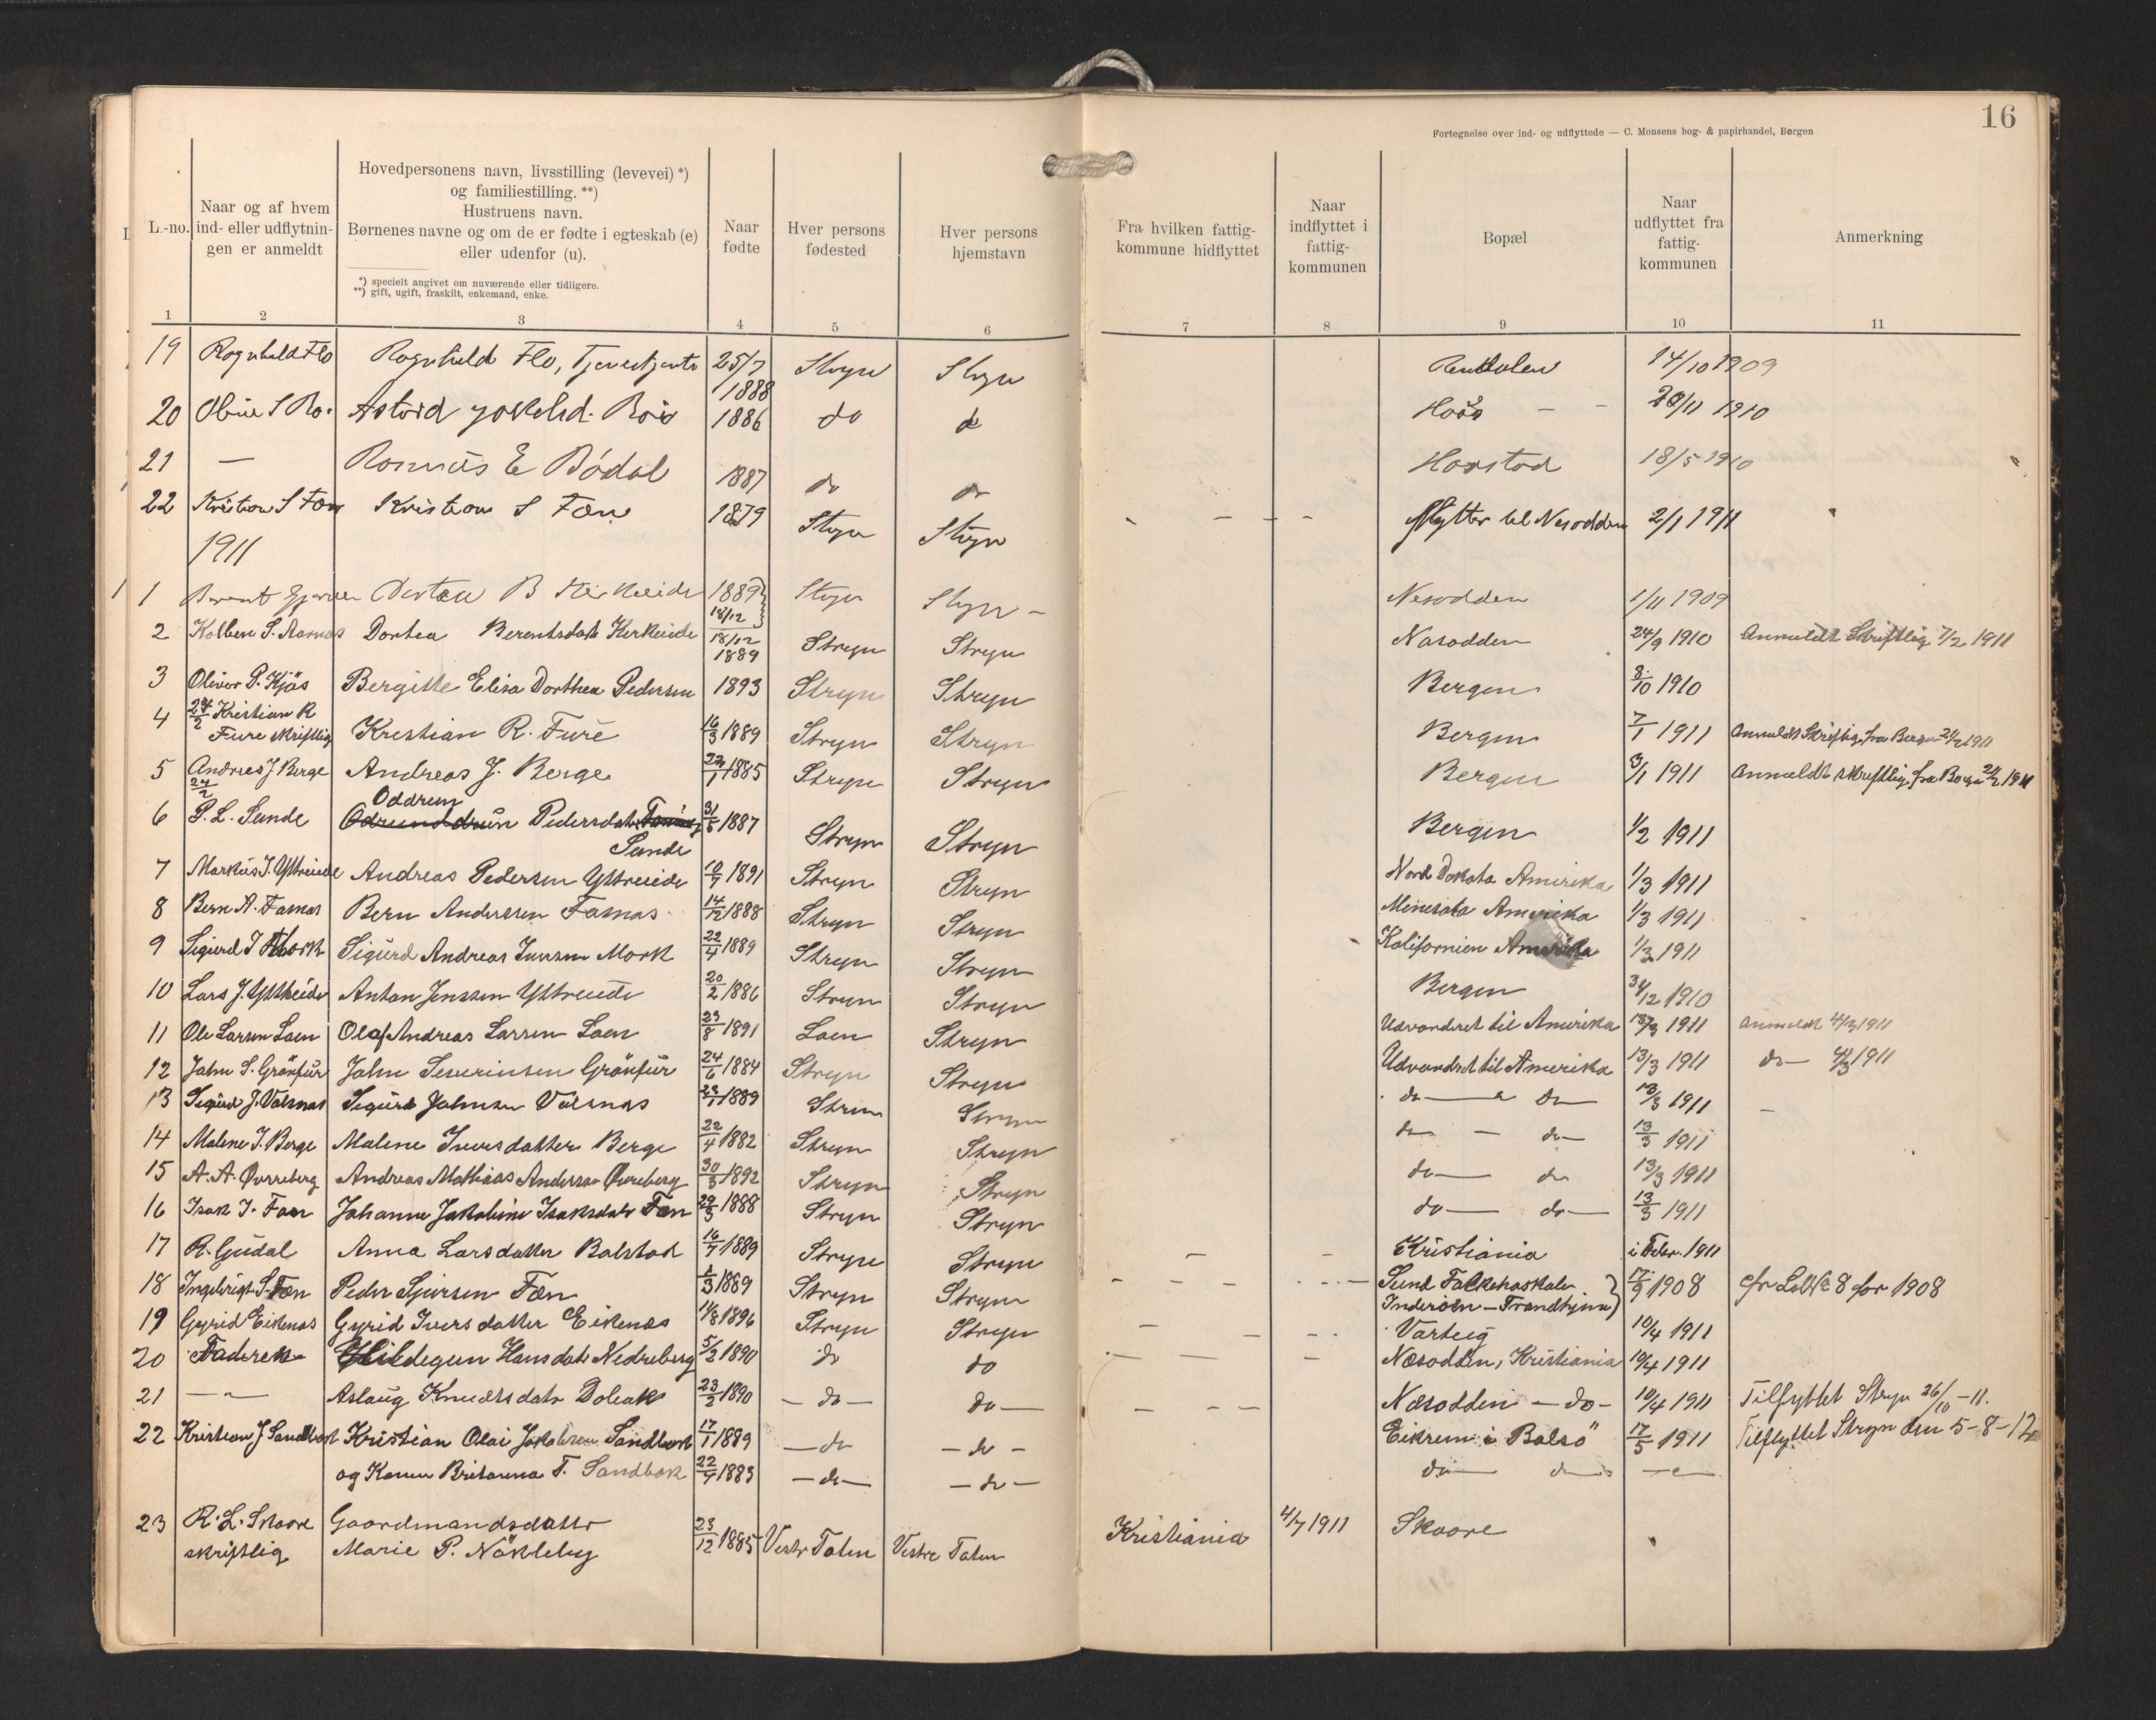 16
Fortegnelse over ind- og udflyttede — C. Monsens bog- & papirhandel, Bergen
L.-no.
Naar og af hvem
ind- eller udflytnin-
gen er anmeldt
Hovedpersonens navn, livsstilling (levevei) *)
og familiestilling. **)
Hustruens navn.
Børnenes navne og om de er fødte i egteskab (e)
eller udenfor (u).
*) specielt angivet om nuværende eller tidligere.
**) gift, ugift, fraskilt, enkemand, enke.
Naar
fødte
Hver persons
fødested
Hver persons
hjemstavn
Fra hvilken fattig-
kommune hidflyttet
Naar
indflyttet i
fattig-
kommunen
Bopæl
Naar
udflyttet fra
fattig-
kommunen
Anmerkning
1 2 3 4 5 6 7 8 9 10 11
19 Ragnhild Flo Ragnhild Flo, 25/7 1888 Stryn Stryn 14/10 1909
20 Astrid 1886 do do 1910
21 — Rasmus E Bødal 1887 do do 18/5 1910
22 Kristian S Fæn Kristian S Fæn 1879 Stryn Stryn – – – flytter til Nesodden 2/1 1911
1911
1 1889 Stryn Stryn – Nesodden 1/11 1909
2 Kolben S. Aarnes Dorthea Berentsdatr Kirkeeide 18/12 1889 Stryn Stryn Næsodden 24/9 1910 Anmeldt Skriftlig 7/2 1911
3 Oliver P. Kjøs Bergitte Elisa Dorthea Pedersen 1893 Stryn Stryn Bergen 8/10 1910
4 24/2 Kristian R Fure skriftlig Kristian R. Fure 16/3 1889 Stryn Stryn Bergen 7/1 1911 Anmeldt Skriftlig fra Bergen 24/2 1911
5 Andreas J Berge 24/2 Andreas J. Berge 1885 Stryn Stryn Bergen 3/1 1911 Anmeldt skriftlig fra Bergen 24/2 1911
6 P. L. Sunde Oddrun Pedersdatr Sunde 31/8 1887 Stryn Stryn Bergen 1/2 1911
7 Markus J. Yttreeide Andreas Pedersen Yttreeide 10/7 1891 Stryn Stryn Nord Dakota Amerika 1/3 1911
8 Bern A. Faснаs Bern Anderssen 14/12 1888 Stryn Stryn Minesota Amerika 1/3 1911
9 Sigurd I Mork Sigurd Andreas Iversen Mork 22/4 1889 Stryn Stryn Kalifornien Amerika 1/3 1911
10 Lars J. Yttreeide Anton Jenssen Yttreeide 20/2 1886 Stryn Stryn Bergen 1910
11 Ole Larsen Loen Olaf Andreas Larsen Loen 23/8 1891 Loen Stryn Udvandret til Amerika 13/3 1911 Anmeldt 4/3 1911
12 John S. Grönfur John Severinsen Grönfur 24/6 1884 Stryn Stryn Udvandret til Amerika 13/3 1911 do — 4/3 1911
13 Sigurd J. Vालsnæs Sigurd Johnsen 1889 Stryn Stryn do — do — 13/3 1911 –
14 Malene I. Berge Malene Iversdatter Berge 22/4 1882 Stryn Stryn do – do – 13/3 1911
15 A. A. Øvreberg Andreas Mathias Andersen Øvreberg 30/3 1892 Stryn Stryn do — do 13/3 1911
16 Isak I. Fæn Johanne Jakobine Isaksdatr Fæn 29/3 1888 Stryn Stryn do — do — 13/3 1911
17 R. Gudal Anna Larsdatter Bolstad 16/7 1889 Stryn Stryn – – Kristiania i Febr. 1911
18 Ingebrigt S. Fæn Peder Sjursen Fæn 1889 Stryn Stryn Sund Folkehøskole Inderøen – Trondhjem 17/9 1908 cfr LobNr 8 for 1908
19 Gyrid Eikenæs Gyrid Iversdatter Eikenæs 1896 Stryn Stryn Varteig 10/4 1911
20 Faderen Hildegun Hansdatr Nedreberg 5/2 1890 do do Næsodden, Kristiania 10/4 1911
21 — „ — Aslaug Knudsdatr 23/2 1890 – do – do — Næsodden – do – 10/4 1911 Tilflyttet Stryn 26/10 – 11.
22 Kristian J Sandbok Kristian Olai Jakobsen Sandbok 17/1 1889 – do – do – Eikrem i Bolsö 17/5 1911 Tilflyttet Stryn den 5-8-12
og Konen Britanna T. Sandbok 22/4 1883 – do – – do – do —
23 R. L. Skaare skriftlig Gaardmandsdatter Marie P. Nökleby 23/12 1885 Vestre Toten Vestre Toten Kristiania 4/7 1911 Skaare